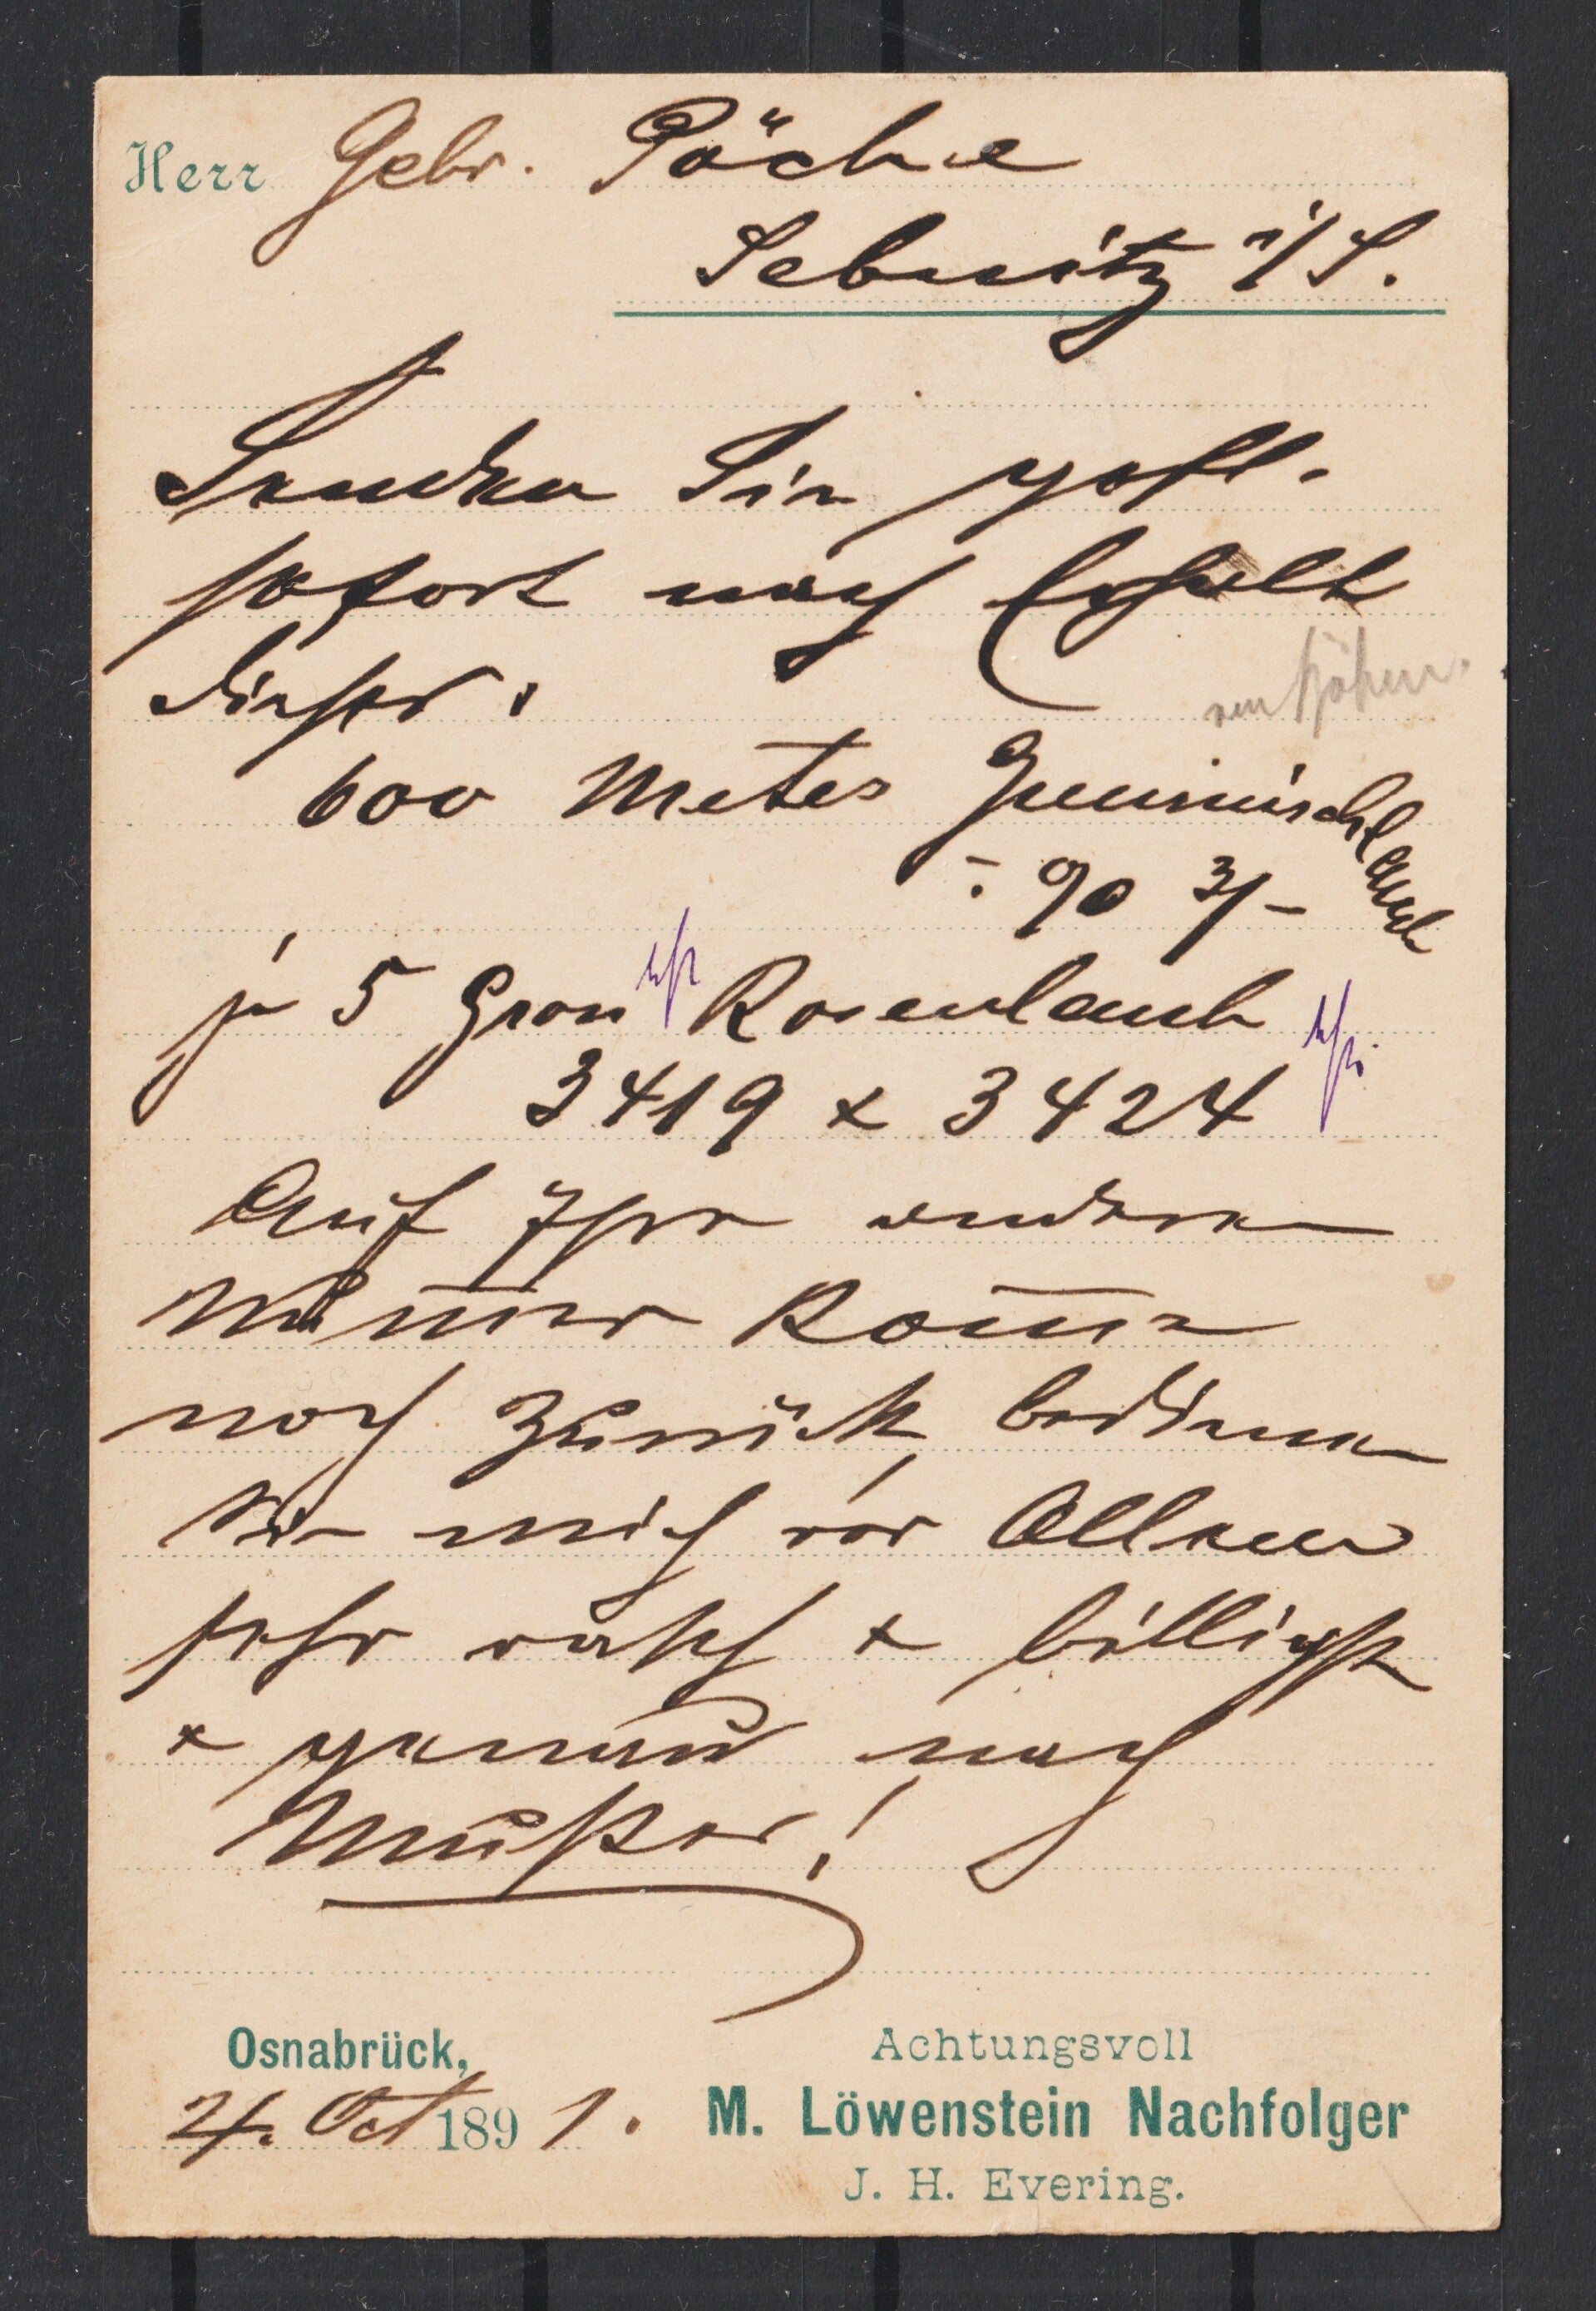 Herr Gebr. Päche
Sebnitz i/S.
Senden Sie gefl.
sofort nach Erhalt
dieser:
600 Meter Gummischlauch
-: 90 ₰ -
je 5 Gross Rosenlaub
3419 & 3424
Auf Ihre anderen
Muster komme
noch zurück, bedienen
Sie mich vor Allem
sehr rasch & billigst
& genau nach
Muster!
Osnabrück,
4. Oct 1891.
Achtungsvoll
M. Löwenstein Nachfolger
J. H. Evering.